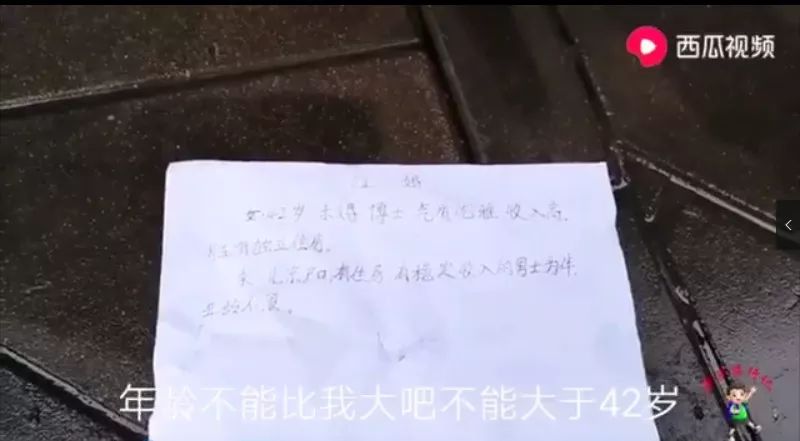 西瓜视频
征 婚
女.42岁 未婚 博士 气质优雅 收入高.
有独立住房.
求 北京户口,有住房 有稳定收入的男士为伴.
非诚勿扰。
年龄不能比我大吧不能大于42岁